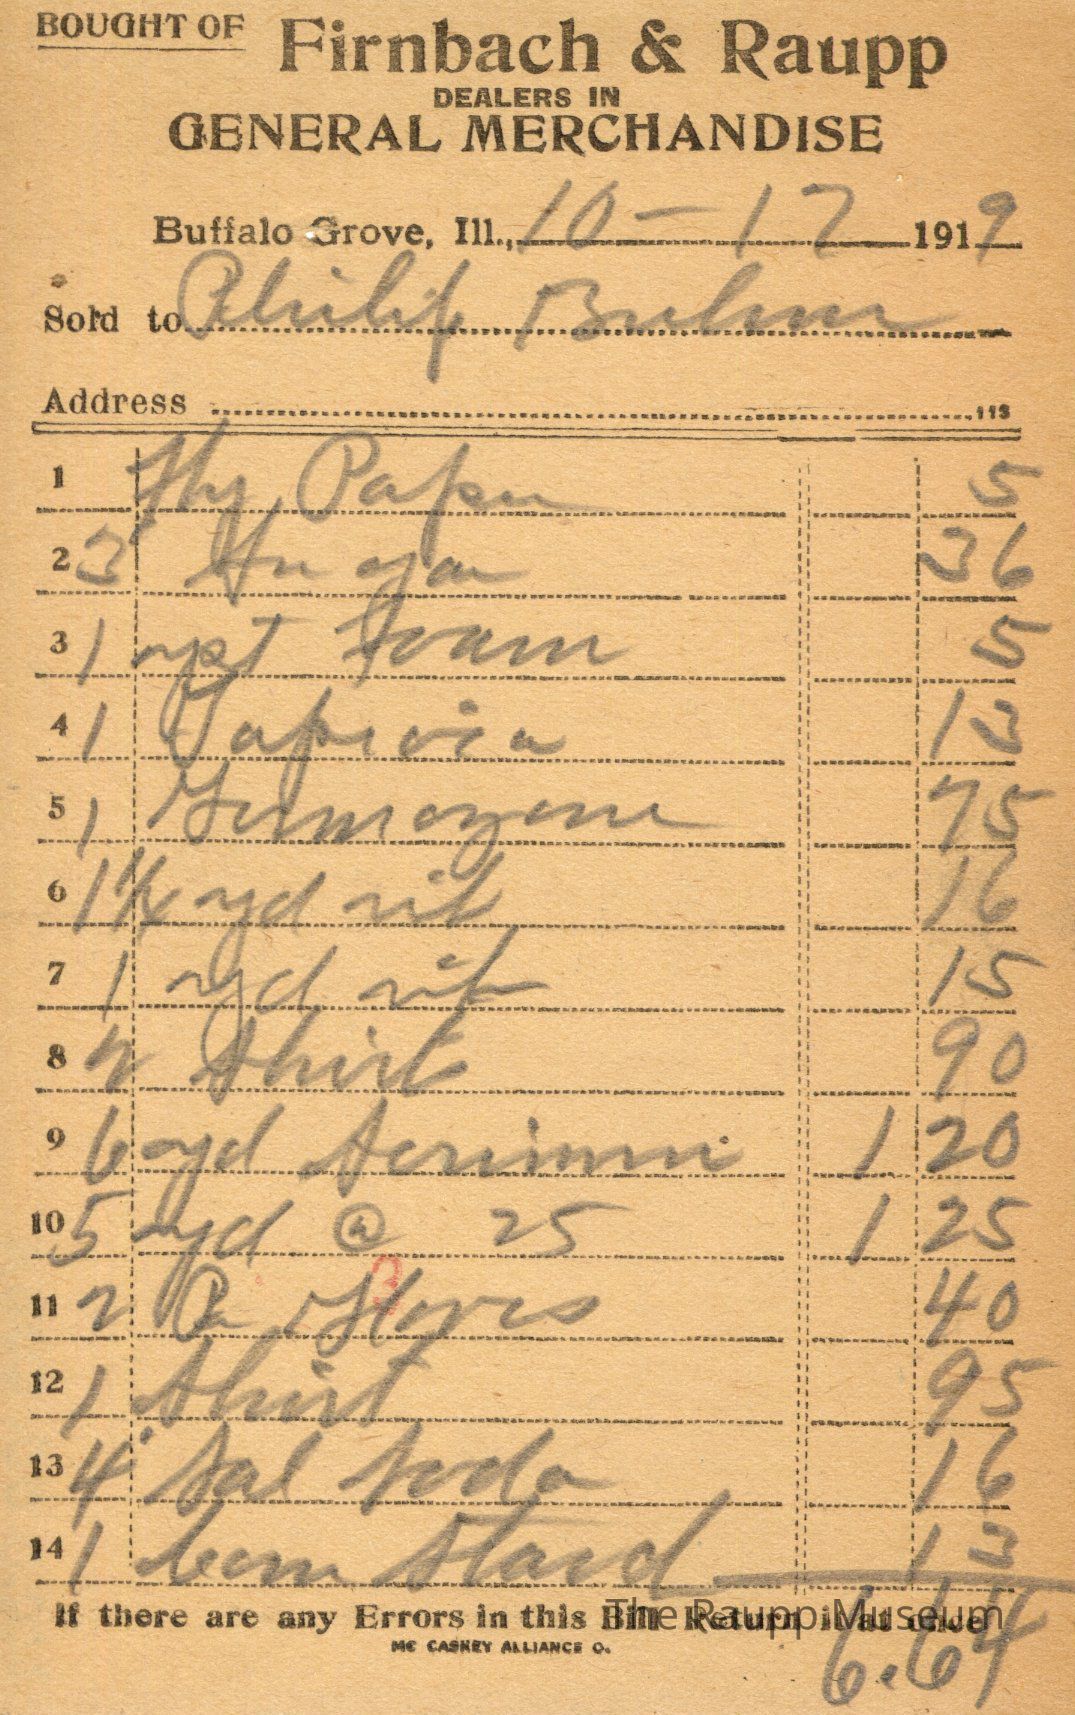 BOUGHT OF Firnbach & Raupp
DEALERS IN
GENERAL MERCHANDISE
Buffalo Grove, Ill., 10-17 1919
Sold to Philip
Address 113
1 Fly Paper 5
2 3 Sugar 36
3 1 foam 5
4 1 Tapioca 13
5 1 Germozone 75
6 1½ yd 16
7 1 yd 15
8 2 Shirt 90
9 6 yd 1 20
10 5 yd @ 25 1 25
11 2 Pr Gloves 40
12 1 Shirt 95
13 4 Sal Soda 16
14 1 Corn Starch 13
If there are any Errors in this Bill Return it at once
The Raupp Museum
MC CASKEY ALLIANCE O.
6.64